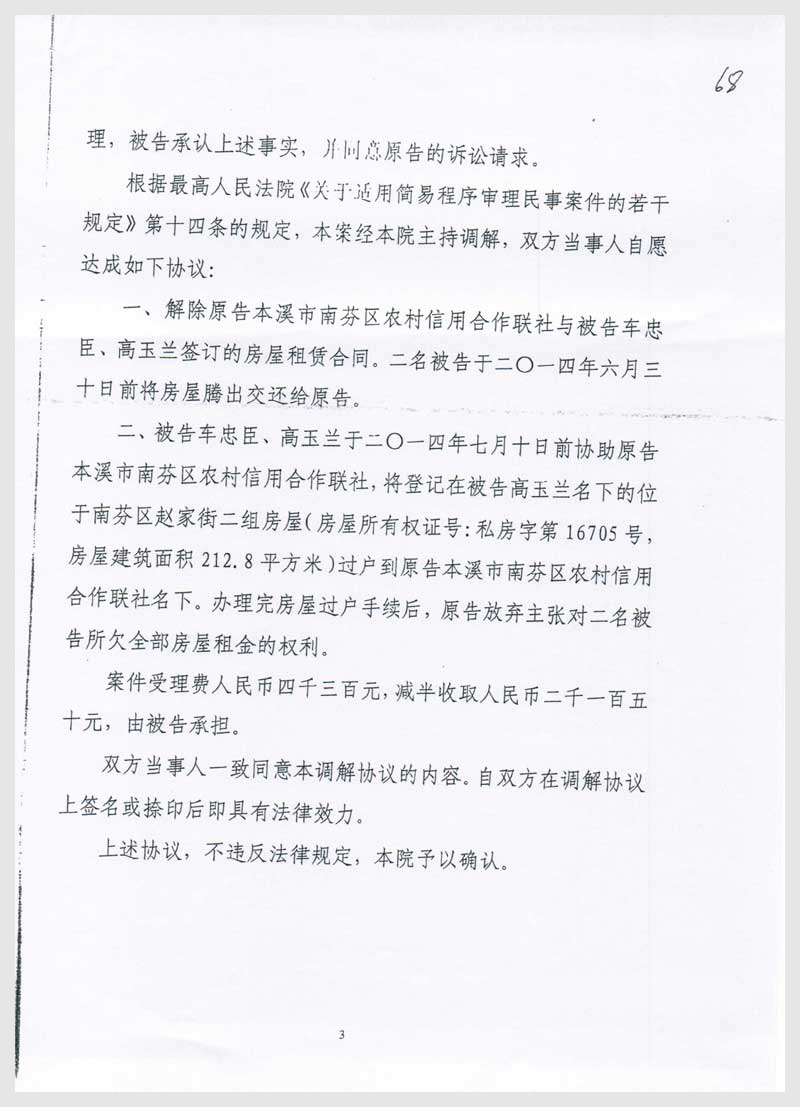 68
理，被告承认上述事实，并同意原告的诉讼请求。
根据最高人民法院《关于适用简易程序审理民事案件的若干
规定》第十四条的规定，本案经本院主持调解，双方当事人自愿
达成如下协议：
一、解除原告本溪市南芬区农村信用合作联社与被告车忠
臣、高玉兰签订的房屋租赁合同。二名被告于二〇一四年六月三
十日前将房屋腾出交还给原告。
二、被告车忠臣、高玉兰于二〇一四年七月十日前协助原告
本溪市南芬区农村信用合作联社，将登记在被告高玉兰名下的位
于南芬区赵家街二组房屋（房屋所有权证号：私房字第16705号，
房屋建筑面积212.8平方米）过户到原告本溪市南芬区农村信用
合作联社名下。办理完房屋过户手续后，原告放弃主张对二名被
告所欠全部房屋租金的权利。
案件受理费人民币四千三百元，减半收取人民币二千一百五
十元，由被告承担。
双方当事人一致同意本调解协议的内容。自双方在调解协议
上签名或捺印后即具有法律效力。
上述协议，不违反法律规定，本院予以确认。
3